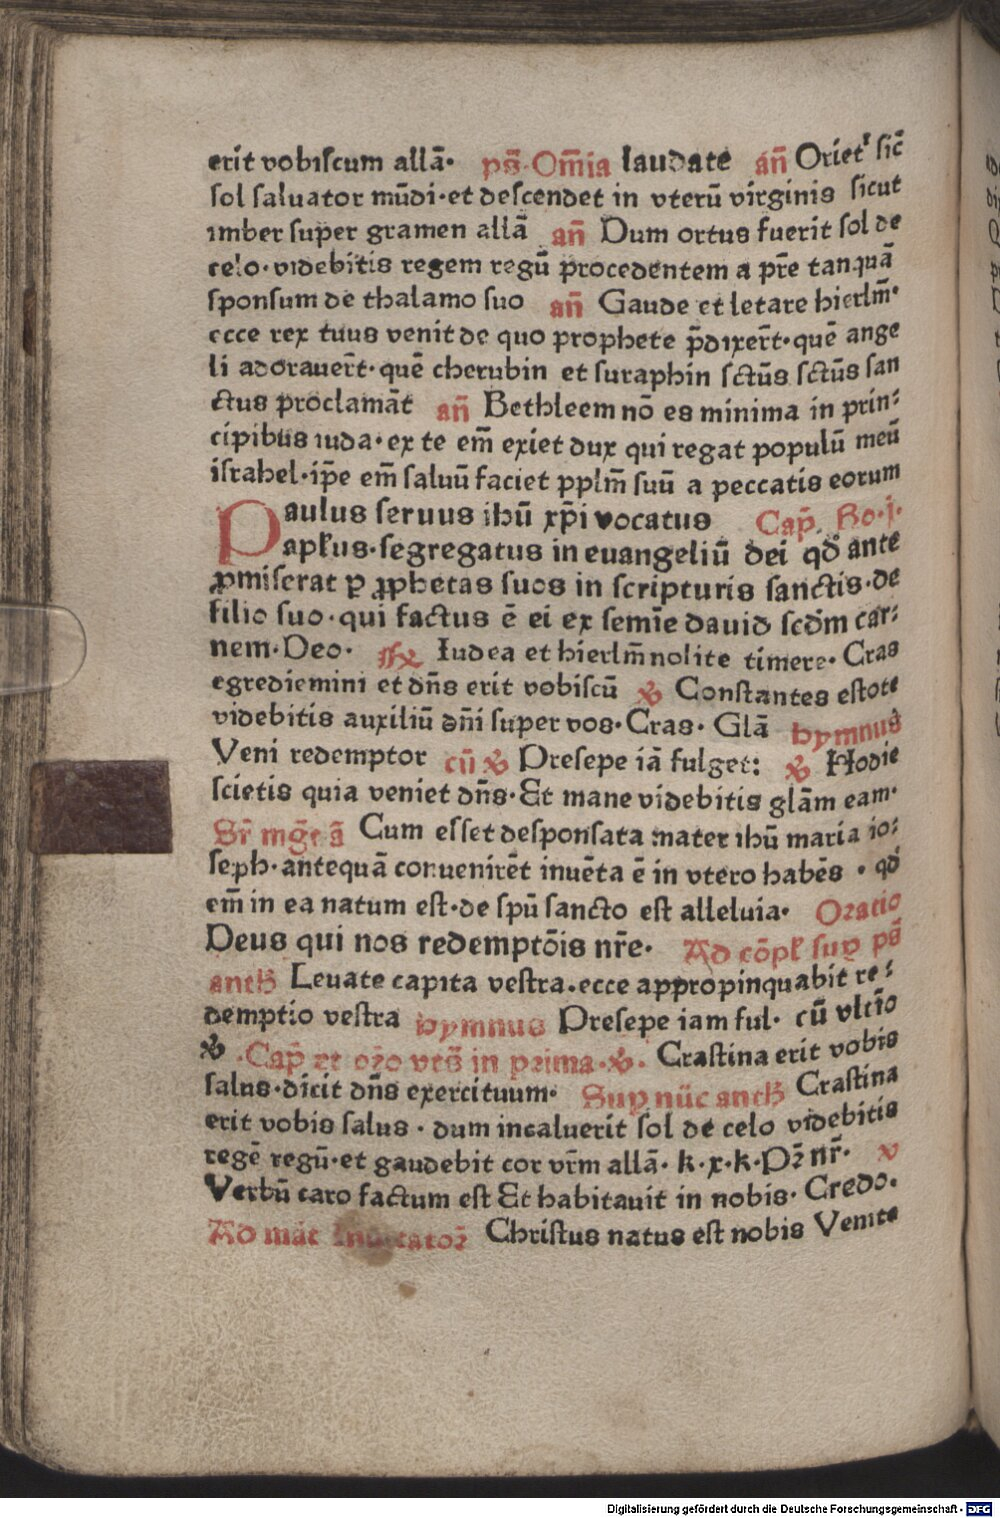 erit vobiscum allā· ps̄·Om̄ia laudate an̄ Orietʳ sic̄
sol saluator mūdi·et descendet in vterū virginis sicut
imber super gramen allā an̄ Dum ortus fuerit sol de
celo·videbitis regem regū procedentem a pr̄e tanquā
sponsum de thalamo suo an̄ Gaude et letare hierlm̄·
ecce rex tuus venit de quo prophete p̄dixer̄t·quē ange
li adorauer̄t·quē cherubin et suraphin sctūs sctūs san
ctus proclamāt an̄ Bethleem nō es minima in prin:
cipibus iuda·ex te em̄ exiet dux qui regat populū meū
israhel·ip̄e em̄ saluū faciet pplm̄ suū a peccatis eorum
Paulus seruus ihū xp̄i vocatus Cap̄. Ro·j·
apłus·segregatus in euangeliū dei qd̄ ante
ꝓmiserat ꝑ ꝓphetas suos in scripturis sanctis·de
filio suo·qui factus ē ei ex semīe dauid scd̄m car:
nem·Deo· Iudea et hierlm̄ nolite timere· Cras
egrediemini et dn̄s erit vobiscū ℣ Constantes estote
videbitis auxiliū dn̄i super vos·Cras· Glā hymnus
Veni redemptor cū ℣ Presepe iā fulget: ℣ Hodie
scietis quia veniet dn̄s·Et mane videbitis glām eam·
Sr̄ mg̅t ā Cum esset desponsata mater ihū maria io:
seph·antequā conuenirēt inuēta ē in vtero habēs · qd̄
em̄ in ea natum est·de spū sancto est alleluia· Oratio
Deus qui nos redemptōis nr̄e· Ad cōpł suꝑ ps̄
anth̄ Leuate capita vestra·ecce appropinquabit re:
demptio vestra hymnus Presepe iam ful· cū vltīo
℣ ·Cap̄ et oro vts̄ in prima·℣· Crastina erit vobis
salus·dicit dn̄s exercituum· Suꝑ nūc anth̄ Crastina
erit vobis salus · dum incaluerit sol de celo videbitis
regē regū·et gaudebit cor vr̄m allā· k·x·k·Pꝛ nr̄· v
Verbū caro factum est Et habitauit in nobis· Credo·
Ad māt Inuitatoꝛ Christus natus est nobis Venite
Digitalisierung gefördert durch die Deutsche Forschungsgemeinschaft - DFG